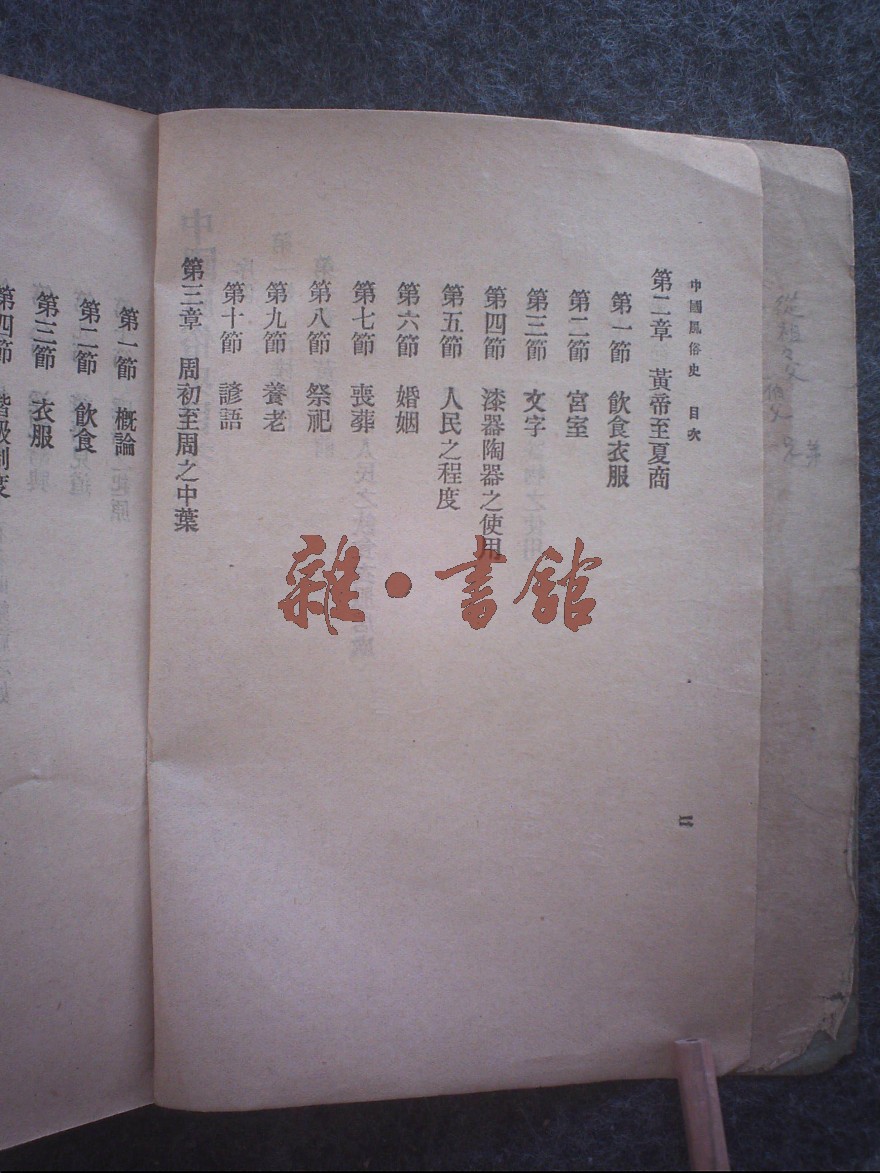 中國風俗史 目次
第二章 黃帝至夏商
第一節 飲食衣服
第二節 宮室
第三節 文字
第四節 漆器陶器之使用
第五節 人民之程度
第六節 婚姻
第七節 喪葬
第八節 祭祀
第九節 養老
第十節 諺語
第三章 周初至周之中葉
二
第一節 概論
第二節 飲食
第三節 衣服
第四節 階級制度
雜·書館